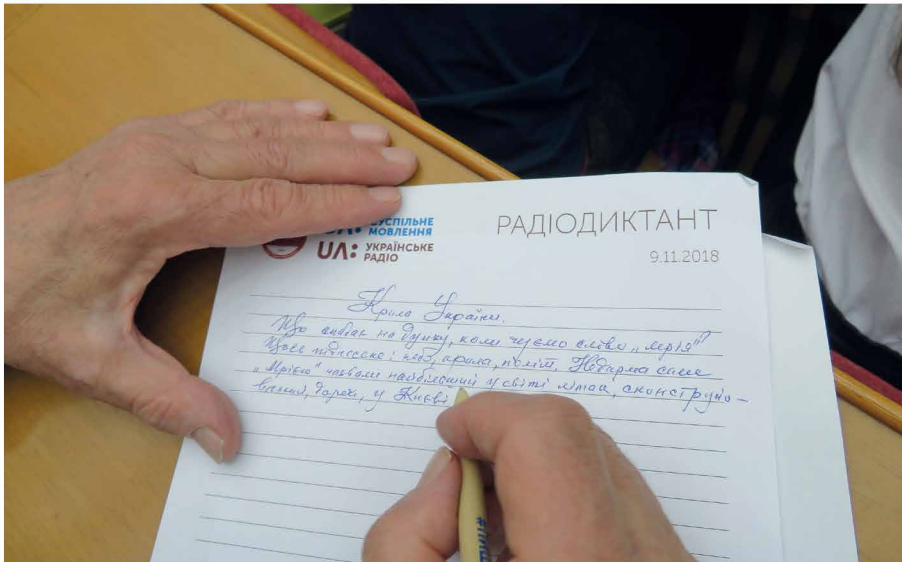 СУСПІЛЬНЕ
МОВЛЕННЯ
UA: УКРАЇНСЬКЕ
РАДІО
РАДІОДИКТАНТ
9.11.2018
Крила України.
Що спадає на думку, коли чуємо слово „мрія"?
Щось піднесене: небо, крила, політ. Недарма саме
„Мрією" назвали найбільший у світі літак, сконструйо-
ваний, до речі, у Києві